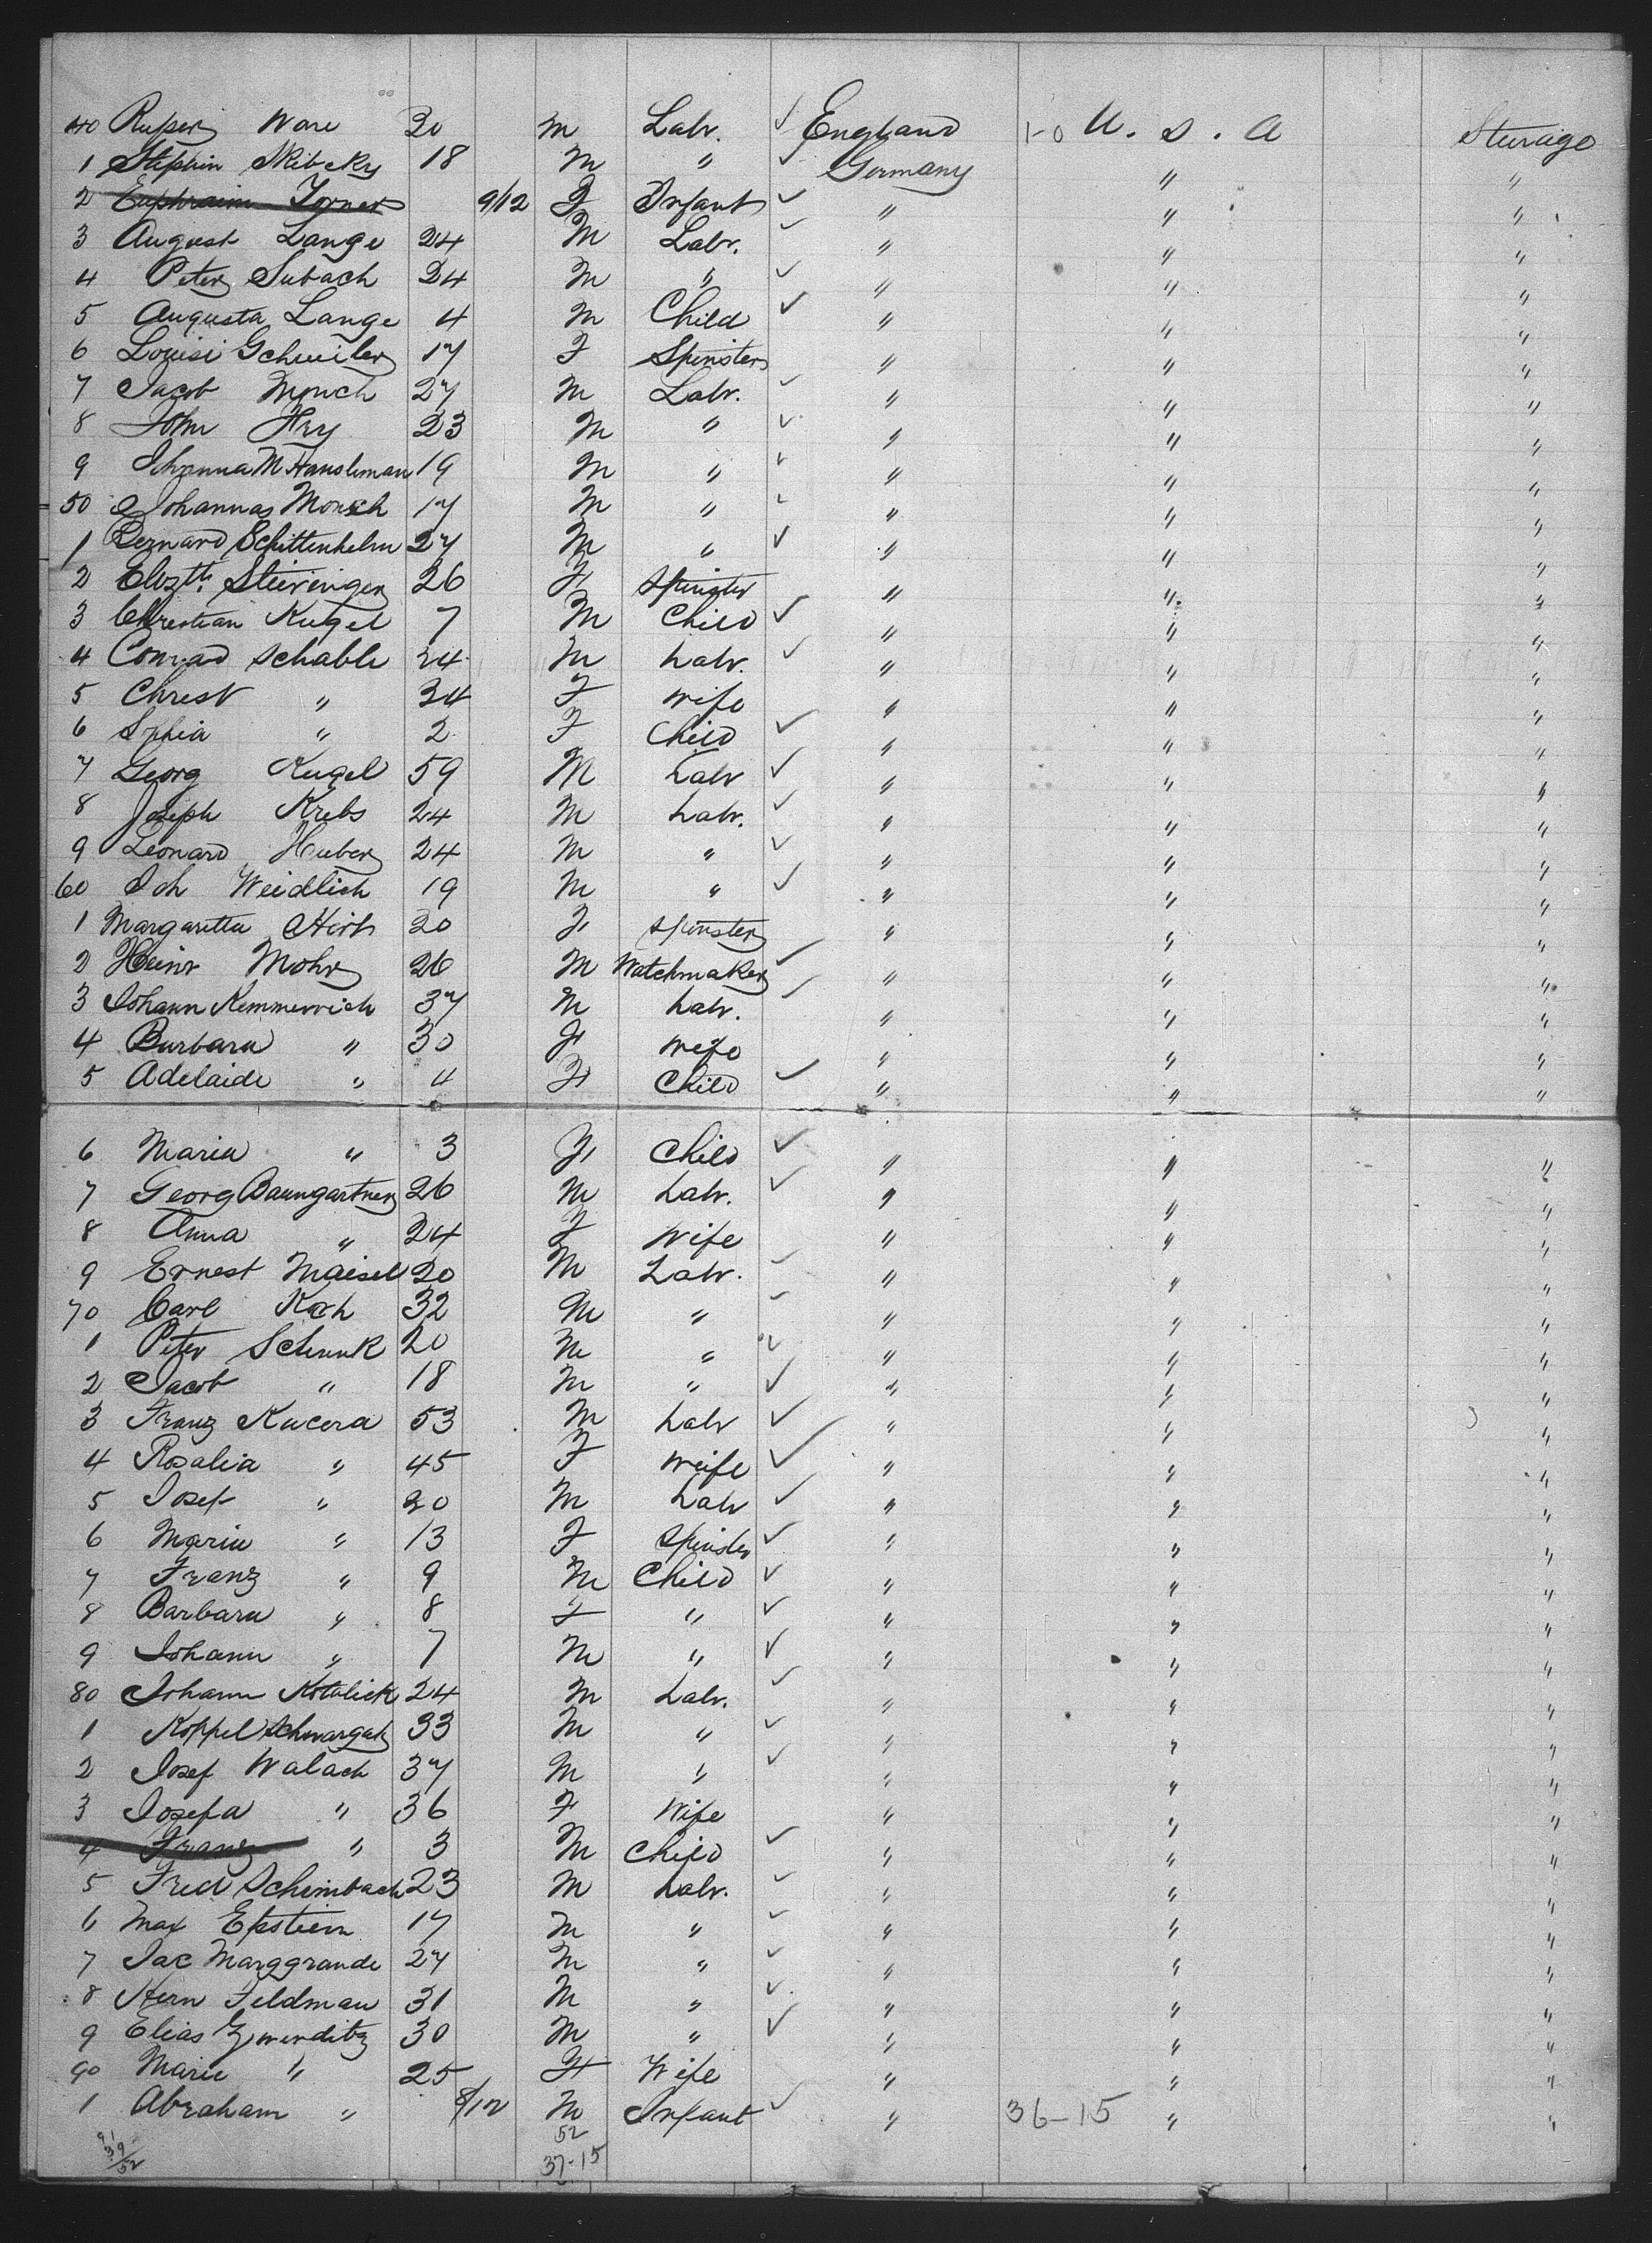 40 Rupert Ware 30 M Labr. ✓ England 1-0 U. S. A Sturage
1 Stephin Skibcky 18 M " ✓ Germany " "
2 Euphraim Torner 9/12 F Infant ✓ " " "
3 August Lange 24 M Labr. ✓ " " "
4 Peter Subach 24 M " ✓ " " "
5 Augusta Lange 4 M Child ✓ " " "
6 Louisi Gchwiler 17 F Spinster " " "
7 Jacob Mynch 27 M Labr. ✓ " " "
8 John Fry 23 M " ✓ " " "
9 Johanna M Hansliman 19 M " ✓ " " "
50 Johannas Monch 17 M " ✓ " " "
1 Bernard Schittenhelm 27 M " ✓ " " "
2 Elizth. Steiringer 26 F Spinster " " "
3 Chrestian Kugel 7 M Child ✓ " " "
4 Conrad Schable 24 M Labr. ✓ " " "
5 Christ " 34 F Wife " " "
6 Sphia " 2 F Child ✓ " " "
7 Georg Kugel 59 M Labr ✓ " " "
8 Joseph Krebs 24 M Labr. ✓ " " "
9 Leonard Huber 24 M " ✓ " " "
60 Joh Weidlich 19 M " ✓ " " "
1 Margaretta Hirt 20 F Spinster " " "
2 Heinr Mohr 26 M Watchmaker ✓ " " "
3 Johann Kemmerrich 37 M Labr. ✓ " " "
4 Barbara " 30 F Wife " " "
5 Adelaide " 4 F Child ✓ " " "
6 Maria " 3 F Child ✓ " " "
7 Georg Baumgartner 26 M Labr. ✓ " " "
8 Anna " 24 F Wife " " "
9 Ernest Maisel 20 M Labr. ✓ " " "
70 Carl Koch 32 M " ✓ " " "
1 Peter Schunk 20 M " ✓ " " "
2 Jacob " 18 M " ✓ " " "
3 Franz Kucera 53 M Labr ✓ " " "
4 Rosalia " 45 F Wife ✓ " " "
5 Josef " 20 M Labr ✓ " " "
6 Maria " 13 F Spinster ✓ " " "
7 Franz " 9 M Child ✓ " " "
8 Barbara " 8 F " ✓ " " "
9 Johann " 7 M " ✓ " " "
80 Johann Kotalick 24 M Labr. ✓ " " "
1 Koppel Schwargat 33 M " ✓ " " "
2 Josef Walach 37 M " ✓ " " "
3 Josefa " 36 F Wife " " "
4 Franz " 3 M Child ✓ " " "
5 Fred Schimbach 23 M Labr. ✓ " " "
6 Max Epstiern 17 M " ✓ " " "
7 Jac Marggrande 27 M " ✓ " " "
8 Hern Feldman 31 M " ✓ " " "
9 Elias Gwerditz 30 M " ✓ " " "
90 Marie " 25 F Wife " " "
1 Abraham " 8/12 M Infant ✓ " 36-15 " "
91 52
39
52 37-15